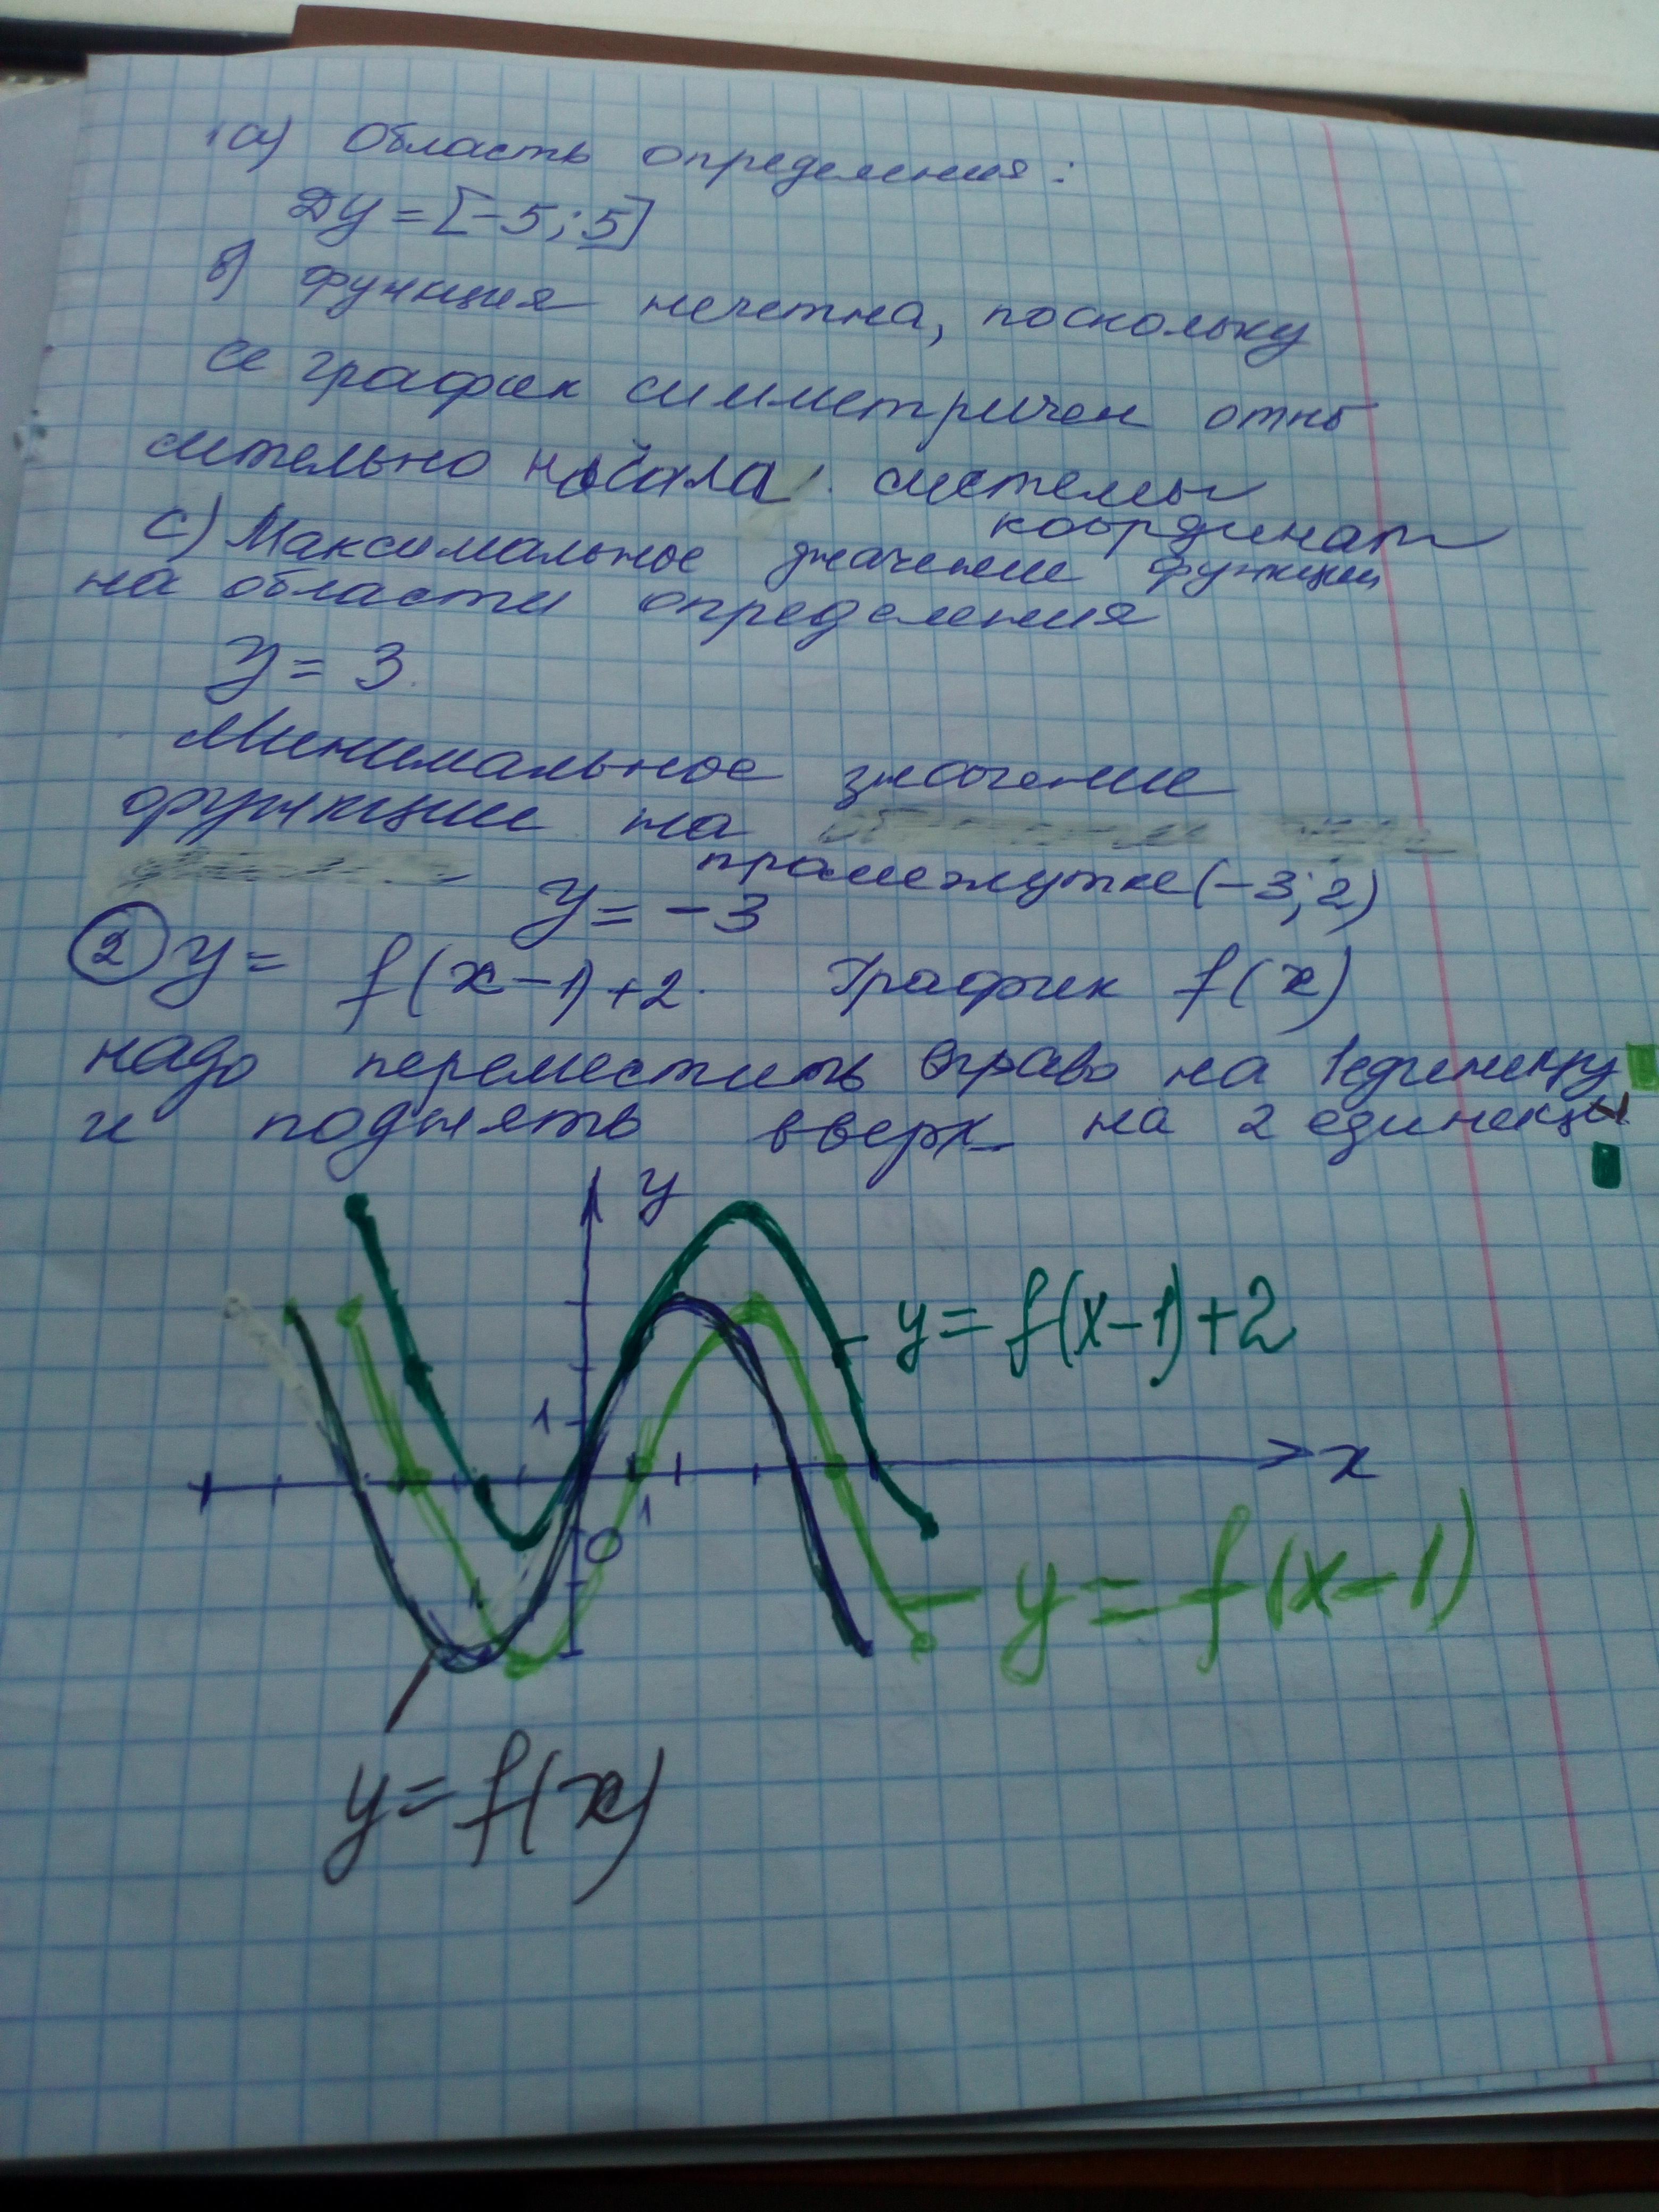 1a) Область определения:
Dy = [-5; 5]
b) Функция нечетна, поскольку
ее график симметричен отно
сительно начала системы
координат
c) Максимальное значение функции
на области определения
y = 3.
Минимальное значение
функции на
промежутке (-3; 2)
y = -3
2 y = f(x-1)+2. График f(x)
надо переместить вправо на 1 единицу
и поднять вверх на 2 единицы
y
y = f(x-1)+2
1
x
1
0
y = f(x-1)
y = f(x)